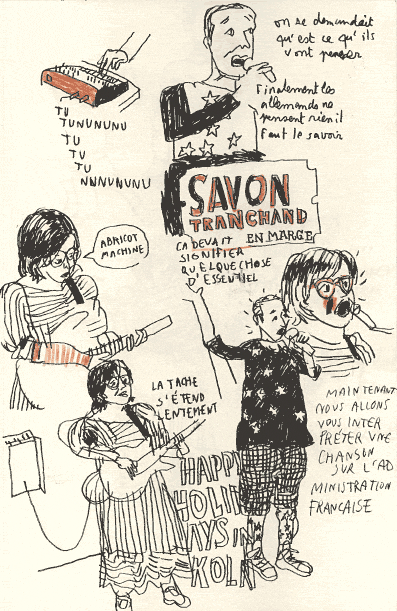 on se demandait
qu'est ce qu'ils
vont penser
Finalement les
allemands ne
pensent rien il
faut le savoir
TU
TUNUNUNU
TU
TU
TU
NNNUNUNU
SAVON
TRANCHAND
EN MARGE
ABRICOT
MACHINE
CA DEVAIT
SIGNIFIER
QUELQUE CHOSE
D'ESSENTIEL
LA TACHE
S'ÉTEND
LENTEMENT
MAINTENANT
NOUS ALLONS
VOUS INTER
PRÉTER UNE
CHANSON
SUR L'AD
MINISTRATION
FRANCAISE
HAPPY
HOLID
AYS IN
KOLN